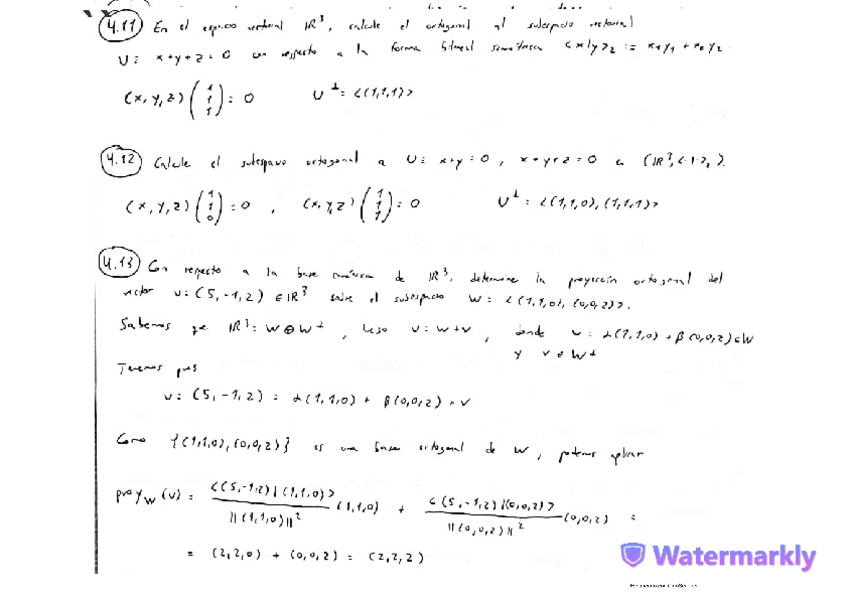 4.11 En el espacio vectorial IR³, calcule el ortogonal al subespacio vectorial
U ≡ x+y+z=0 con respecto a la forma bilineal simétrica <x|y>₂ := x₁y₁ + x₂y₂.
(x,y,z) (1 1 1) = 0 U⊥ = <(1,1,1)>
4.12 Calcule el subespacio ortogonal a U ≡ x+y=0, x+y+z=0 en (IR³, <·|·>).
(x,y,z) (1 1 0) = 0, (x,y,z) (1 1 1) = 0 U⊥ = <(1,1,0), (1,1,1)>
4.13 Con respecto a la base canónica de IR³, determine la proyección ortogonal del
vector v=(5,-1,2) ∈ IR³ sobre el subespacio W = <(1,1,0), (0,0,2)>.
Sabemos que IR³ = W ⊕ W⊥, luego v = u+v, donde u = α(1,1,0) + β(0,0,2) ∈ W
y v ∈ W⊥
Tenemos pues
v = (5,-1,2) = α(1,1,0) + β(0,0,2) + v
Como {(1,1,0), (0,0,2)} es una base ortogonal de W, podemos aplicar
proy_W(v) = <(5,-1,2)|(1,1,0)> / ||(1,1,0)||² (1,1,0) + <(5,-1,2)|(0,0,2)> / ||(0,0,2)||² (0,0,2) =
= (2,2,0) + (0,0,2) = (2,2,2)
Watermarkly